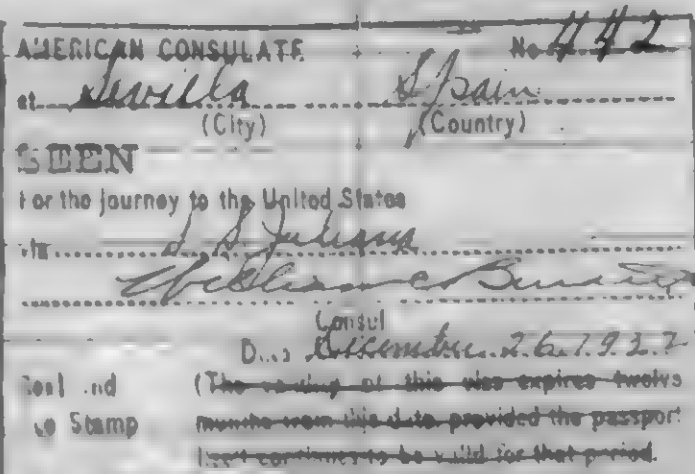 AMERICAN CONSULATE No 442
at Sevilla Spain
(City) (Country)
SEEN
For the journey to the United States
via S. S.
William C Burdett
Consul
Date December 26, 1932
Seal and (The validity of this visa expires twelve
Fee Stamp months from this date provided the passport
itself continues to be valid for that period.